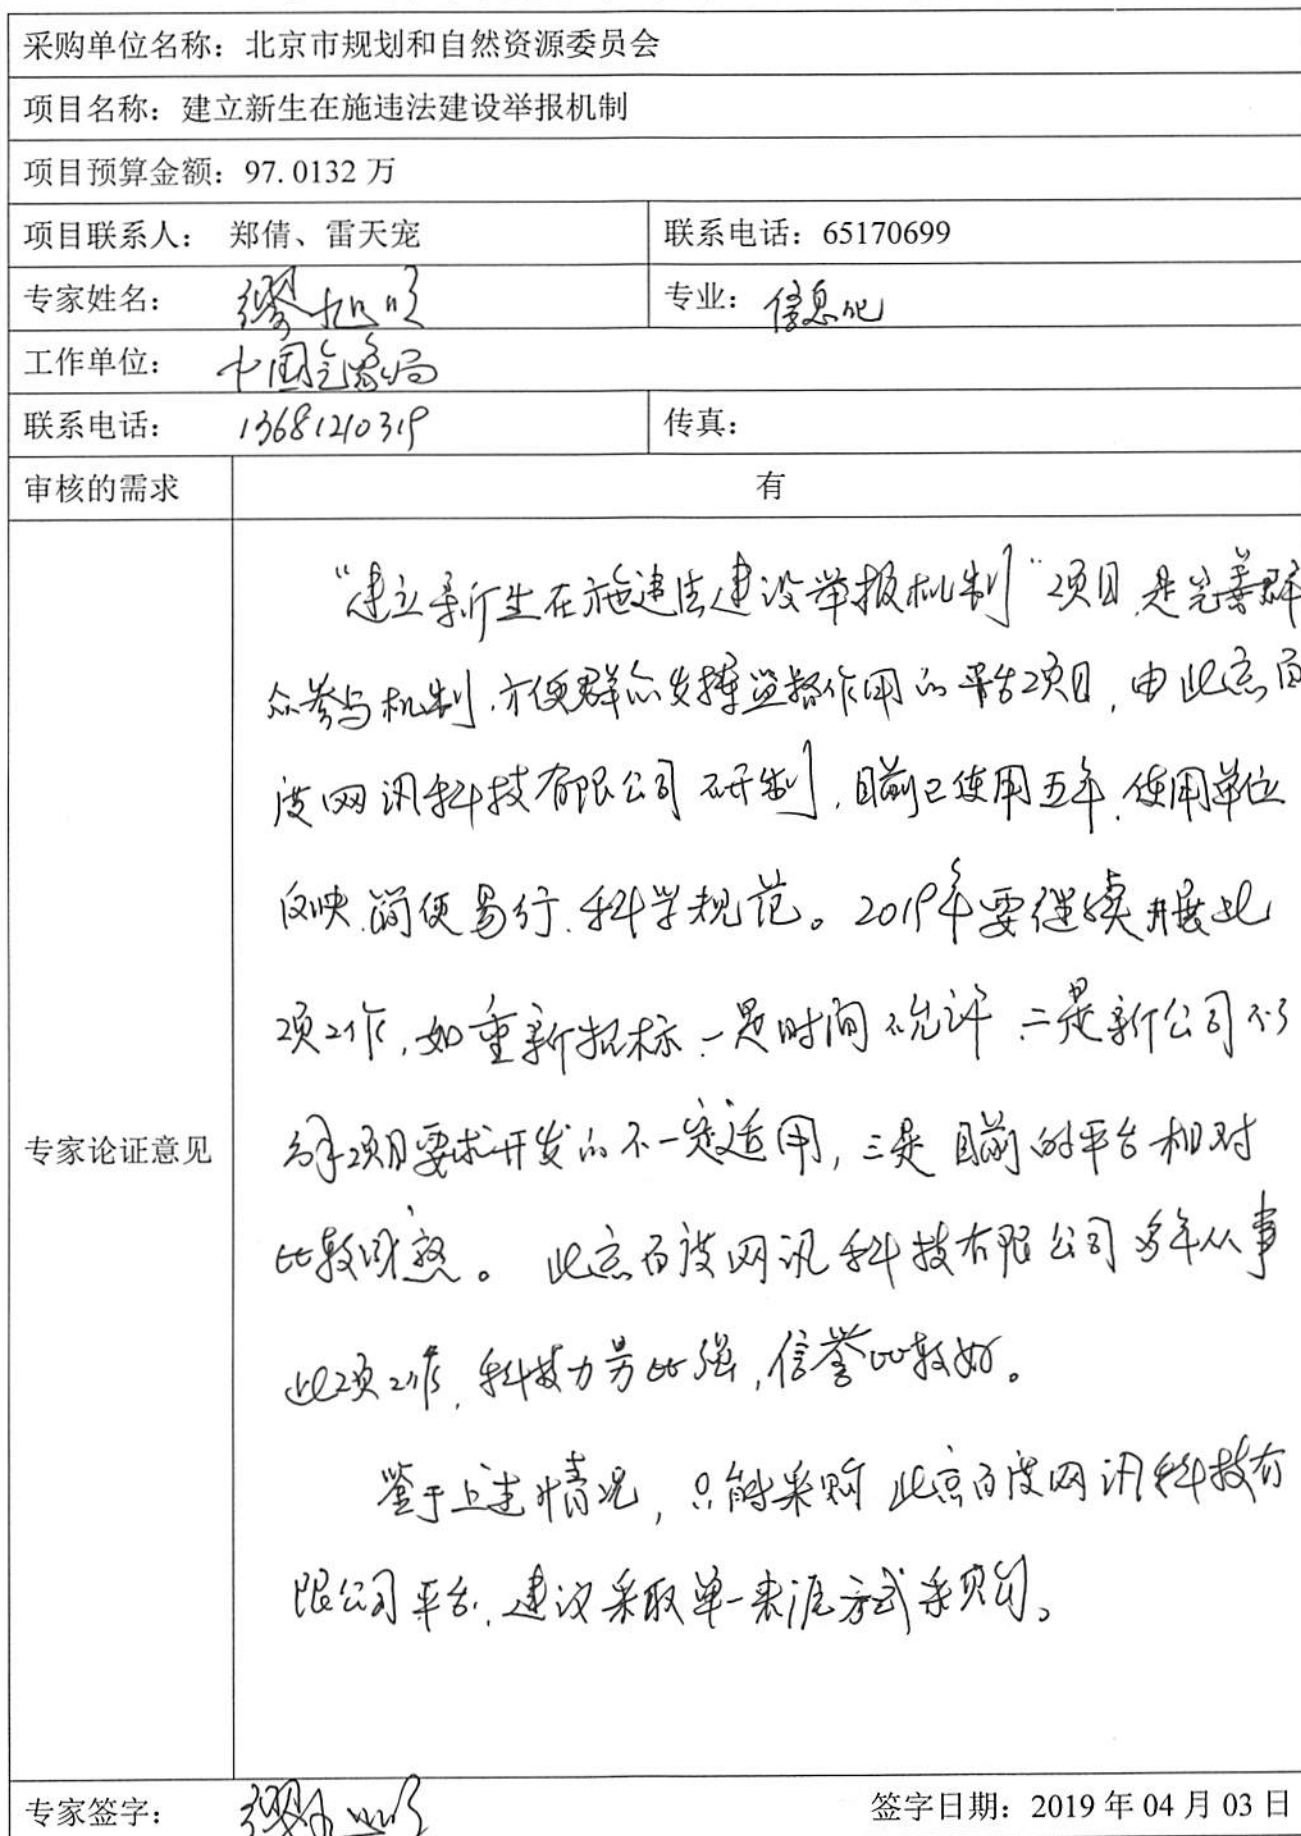 采购单位名称：北京市规划和自然资源委员会
项目名称：建立新生在施违法建设举报机制
项目预算金额：97.0132 万
项目联系人： 郑倩、雷天宠 联系电话：65170699
专家姓名： 缪旭明 专业：信息化
工作单位： 中国气象局
联系电话： 13681210319 传真：
审核的需求 有
“建立新生在施违法建设举报机制”项目,是完善群
众参与机制,方便群众发挥监督作用的平台项目,由北京百
度网讯科技有限公司研制,目前已使用五年,使用单位
反映,简便易行,科学规范。2019年要继续开展此
项工作,如重新招标,一是时间不允许,二是新公司
项目要求开发的不一定适用,三是目前的平台相对
专家论证意见
比较成熟。北京百度网讯科技有限公司多年从事
此项工作,科技力另比强,信誉比较好。
鉴于上述情况,只能采购北京百度网讯科技有
限公司平台,建议采取单一来源方式采购。
专家签字： 缪旭明 签字日期：2019 年 04 月 03 日